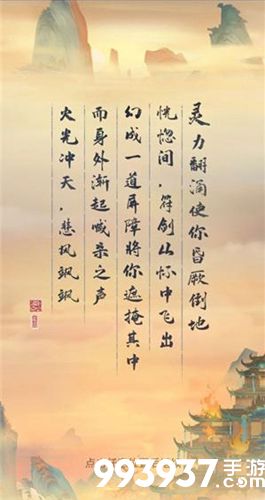 灵力翻涌使你昏厥倒地
恍惚间，符剑从怀中飞出
幻成一道屏障将你遮掩其中
而身外渐起喊杀之声
火光冲天，悲风飒飒
993937手游